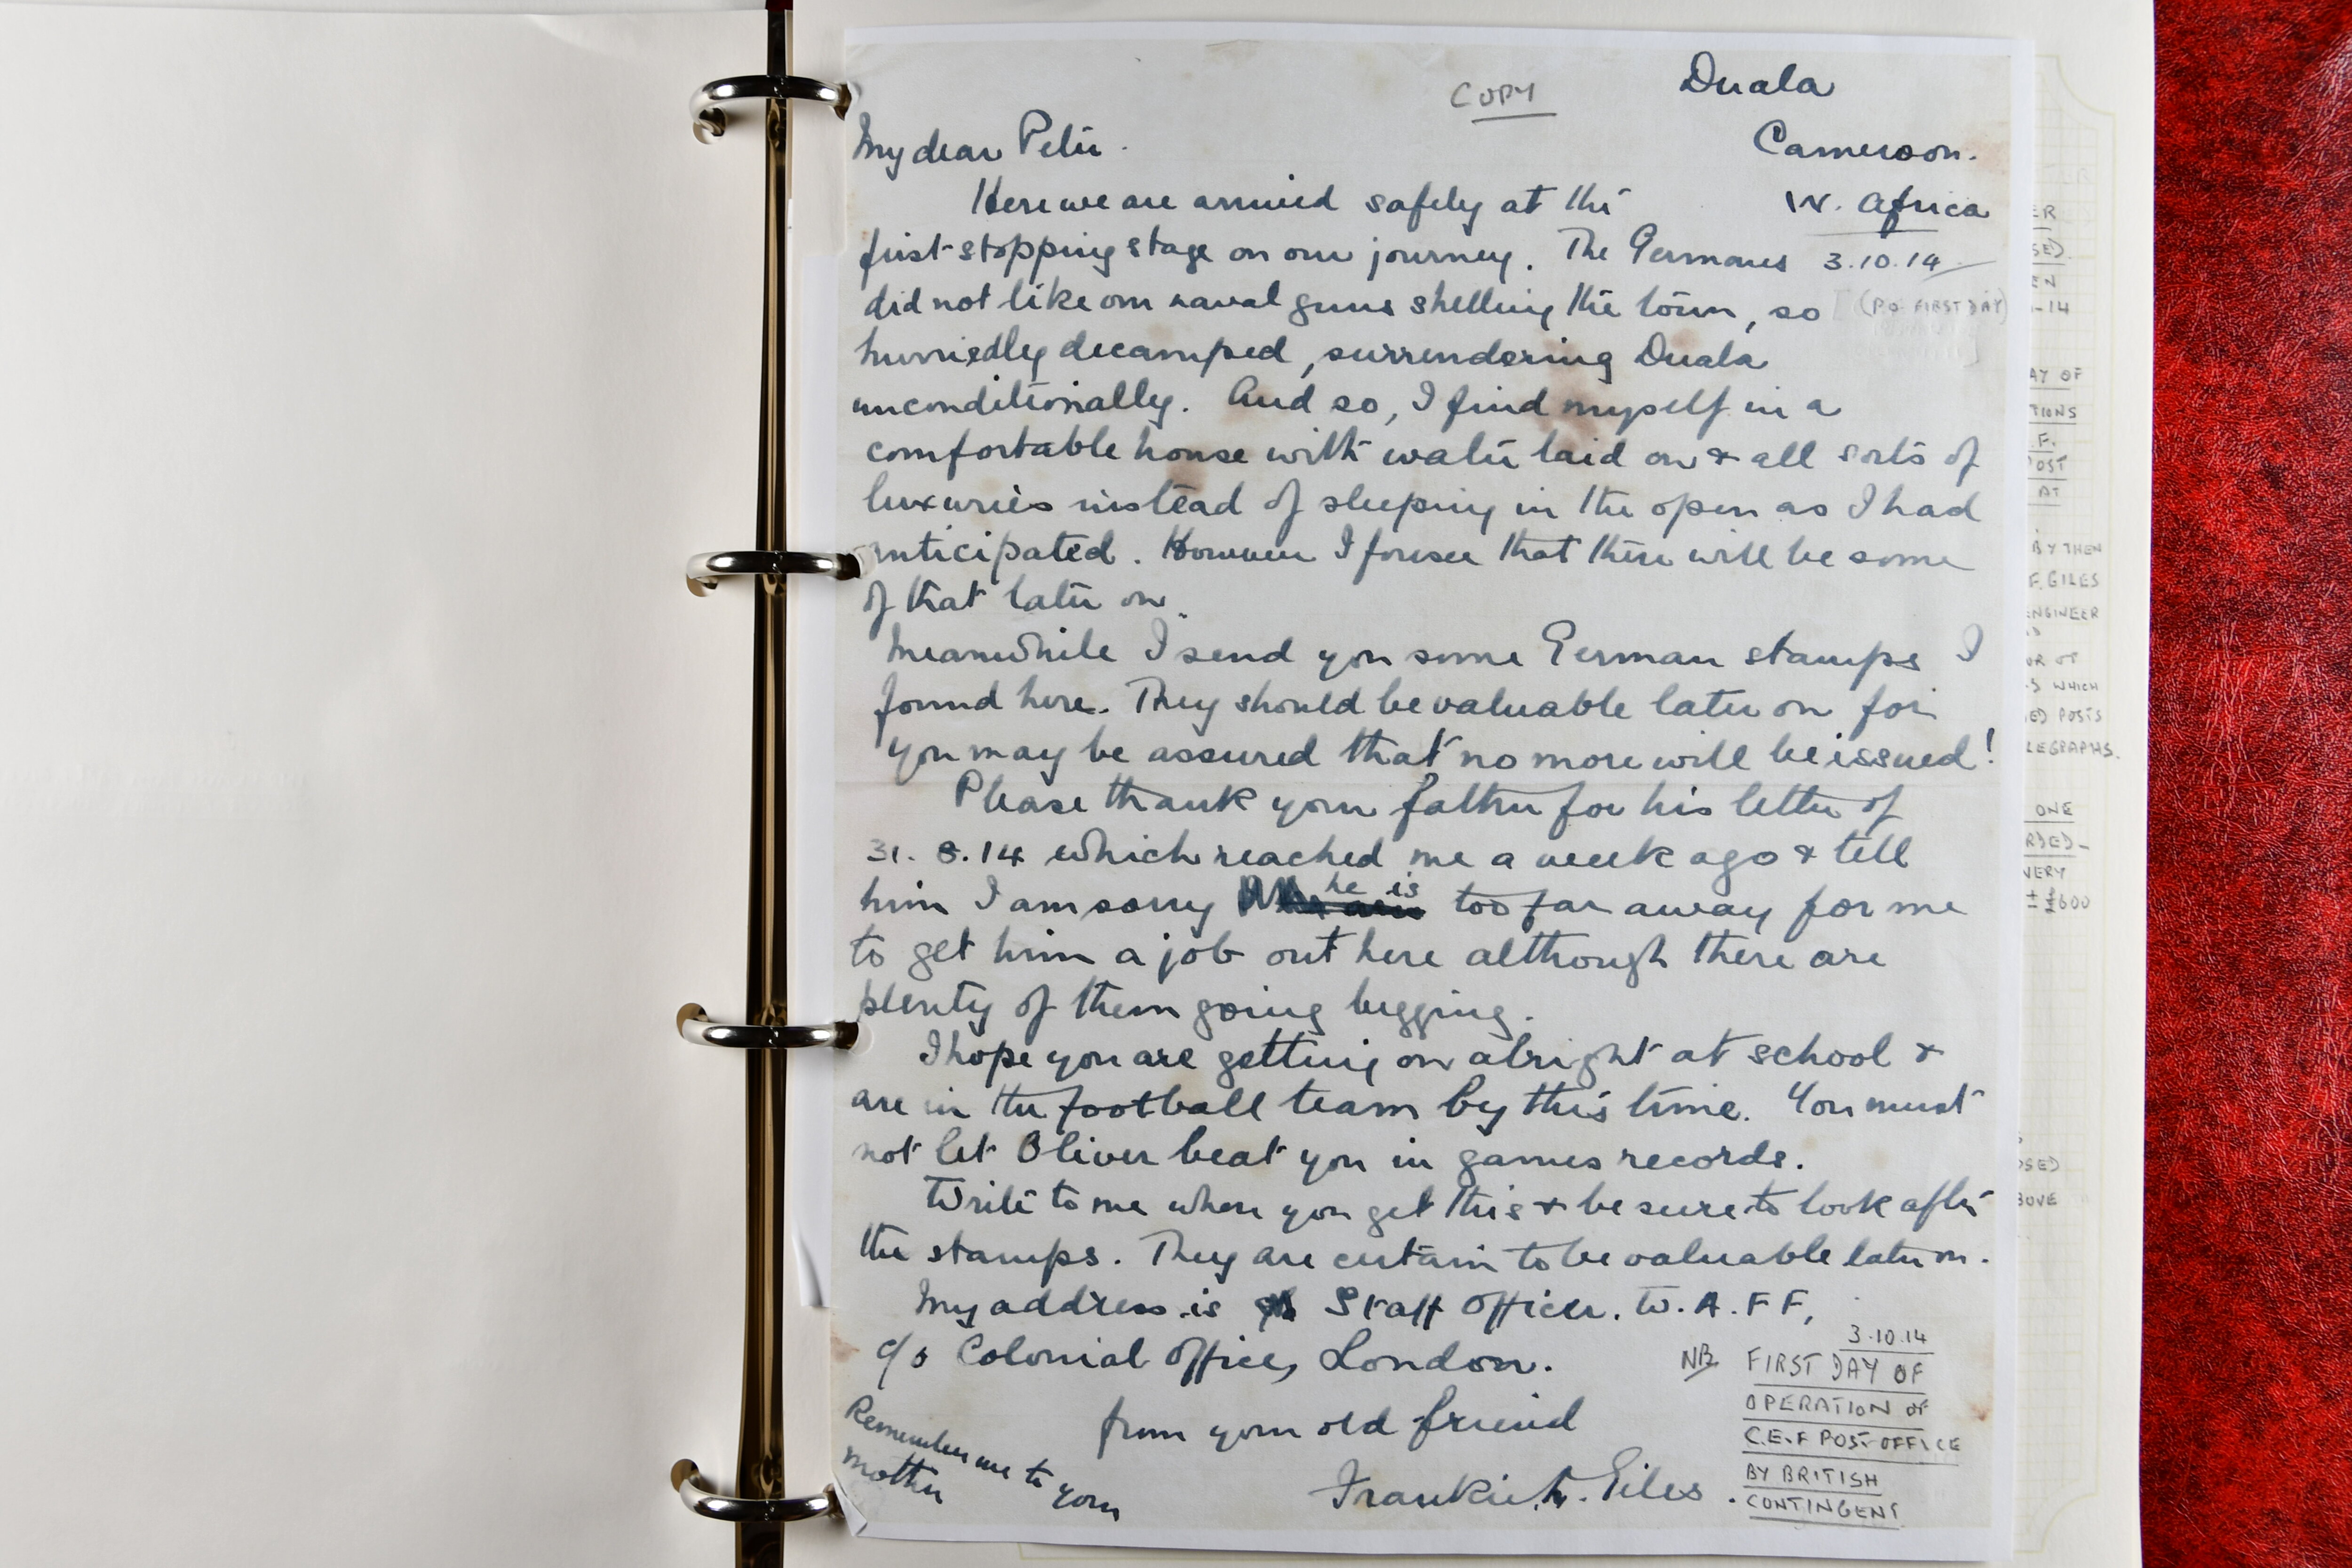 COPY
Duala
Cameroon.
W. Africa
3.10.14
(P.O FIRST DAY)
My dear Peter.
Here we are arrived safely at the
first stopping stage on our journey. The Germans
did not like our naval guns shelling the town, so
hurriedly decamped, surrendering Duala
unconditionally. And so, I find myself in a
comfortable house with water laid on & all sorts of
luxuries instead of sleeping in the open as I had
anticipated. However I forsee that there will be some
of that later on.
Meanwhile I send you some German stamps I
found here. They should be valuable later on for
you may be assured that no more will be issued!
Please thank your father for his letter of
31. 8. 14 which reached me a week ago & tell
him I am sorry he is too far away for me
to get him a job out here although there are
plenty of them going begging.
I hope you are getting on alright at school &
are in the football team by this time. You must
not let Oliver beat you in games records.
Write to me when you get this & be sure to look after
the stamps. They are certain to be valuable later on.
My address is Staff Officer. W.A.FF,
c/o Colonial Office, London.
from your old friend
Frankie Giles.
Remember me to your
mother
3.10.14
NB. FIRST DAY OF
OPERATION OF
C.E.F POST-OFFICE
BY BRITISH
CONTINGENT
ER
SED).
EN
-14
AY OF
TIONS
.F.
OST
AT
BY THEN
F. GILES
ENGINEER
OR OF
S WHICH
ED POSTS
LEGRAPHS.
ONE
RBED-
VERY
± £600
OSED
BOVE